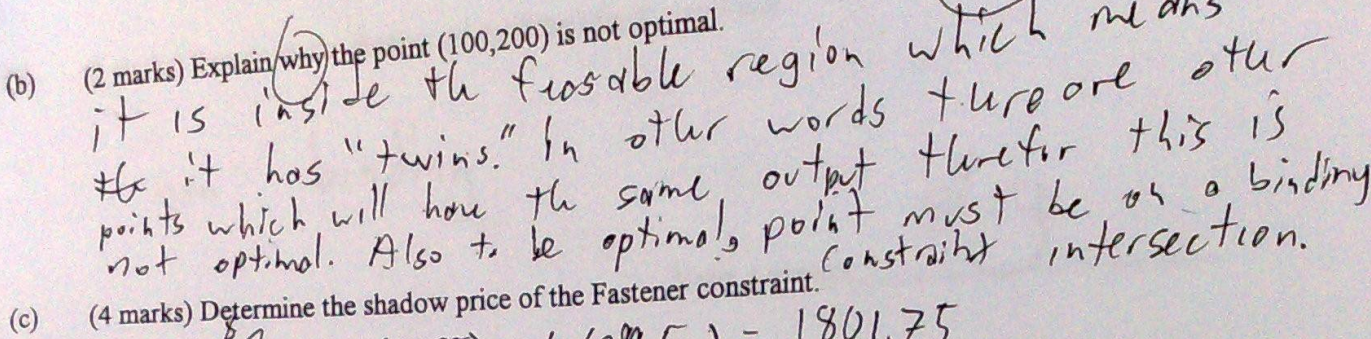 (b) (2 marks) Explain why the point (100,200) is not optimal.
it is inside the feasable region which means
it has "twins." In other words there are other
points which will have the same output therefor this is
not optimal. Also to be optimal, point must be on a binding
constraint intersection.
(c) (4 marks) Determine the shadow price of the Fastener constraint.
- 1801.75